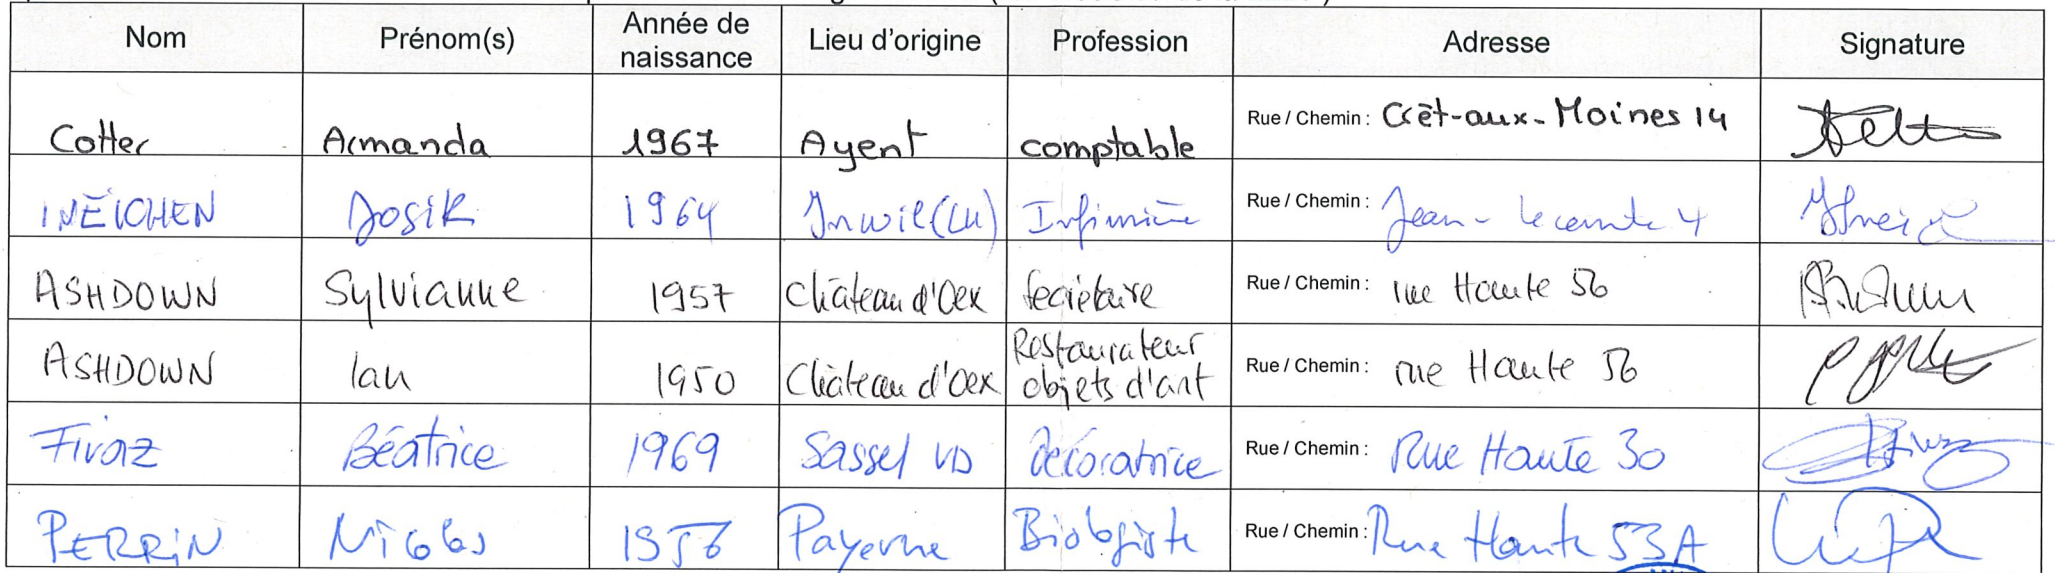 Nom Prénom(s) Année de naissance Lieu d'origine Profession Adresse Signature
Cotter Armanda 1967 Ayent comptable Rue / Chemin : Crêt-aux-Moines 14
INEICHEN Josik 1964 Inwil (LU) Infirmière Rue / Chemin : Jean-Lecomte 4
ASHDOWN Sylvianne 1957 Château d'Oex secrétaire Rue / Chemin : rue Haute 56
ASHDOWN Ian 1950 Château d'Oex Restaurateur objets d'art Rue / Chemin : rue Haute 56
Fivaz Béatrice 1969 Sassel VD Décoratrice Rue / Chemin : Rue Haute 30
PERRIN Nicolas 1956 Payerne Biologiste Rue / Chemin : Rue Haute 53A